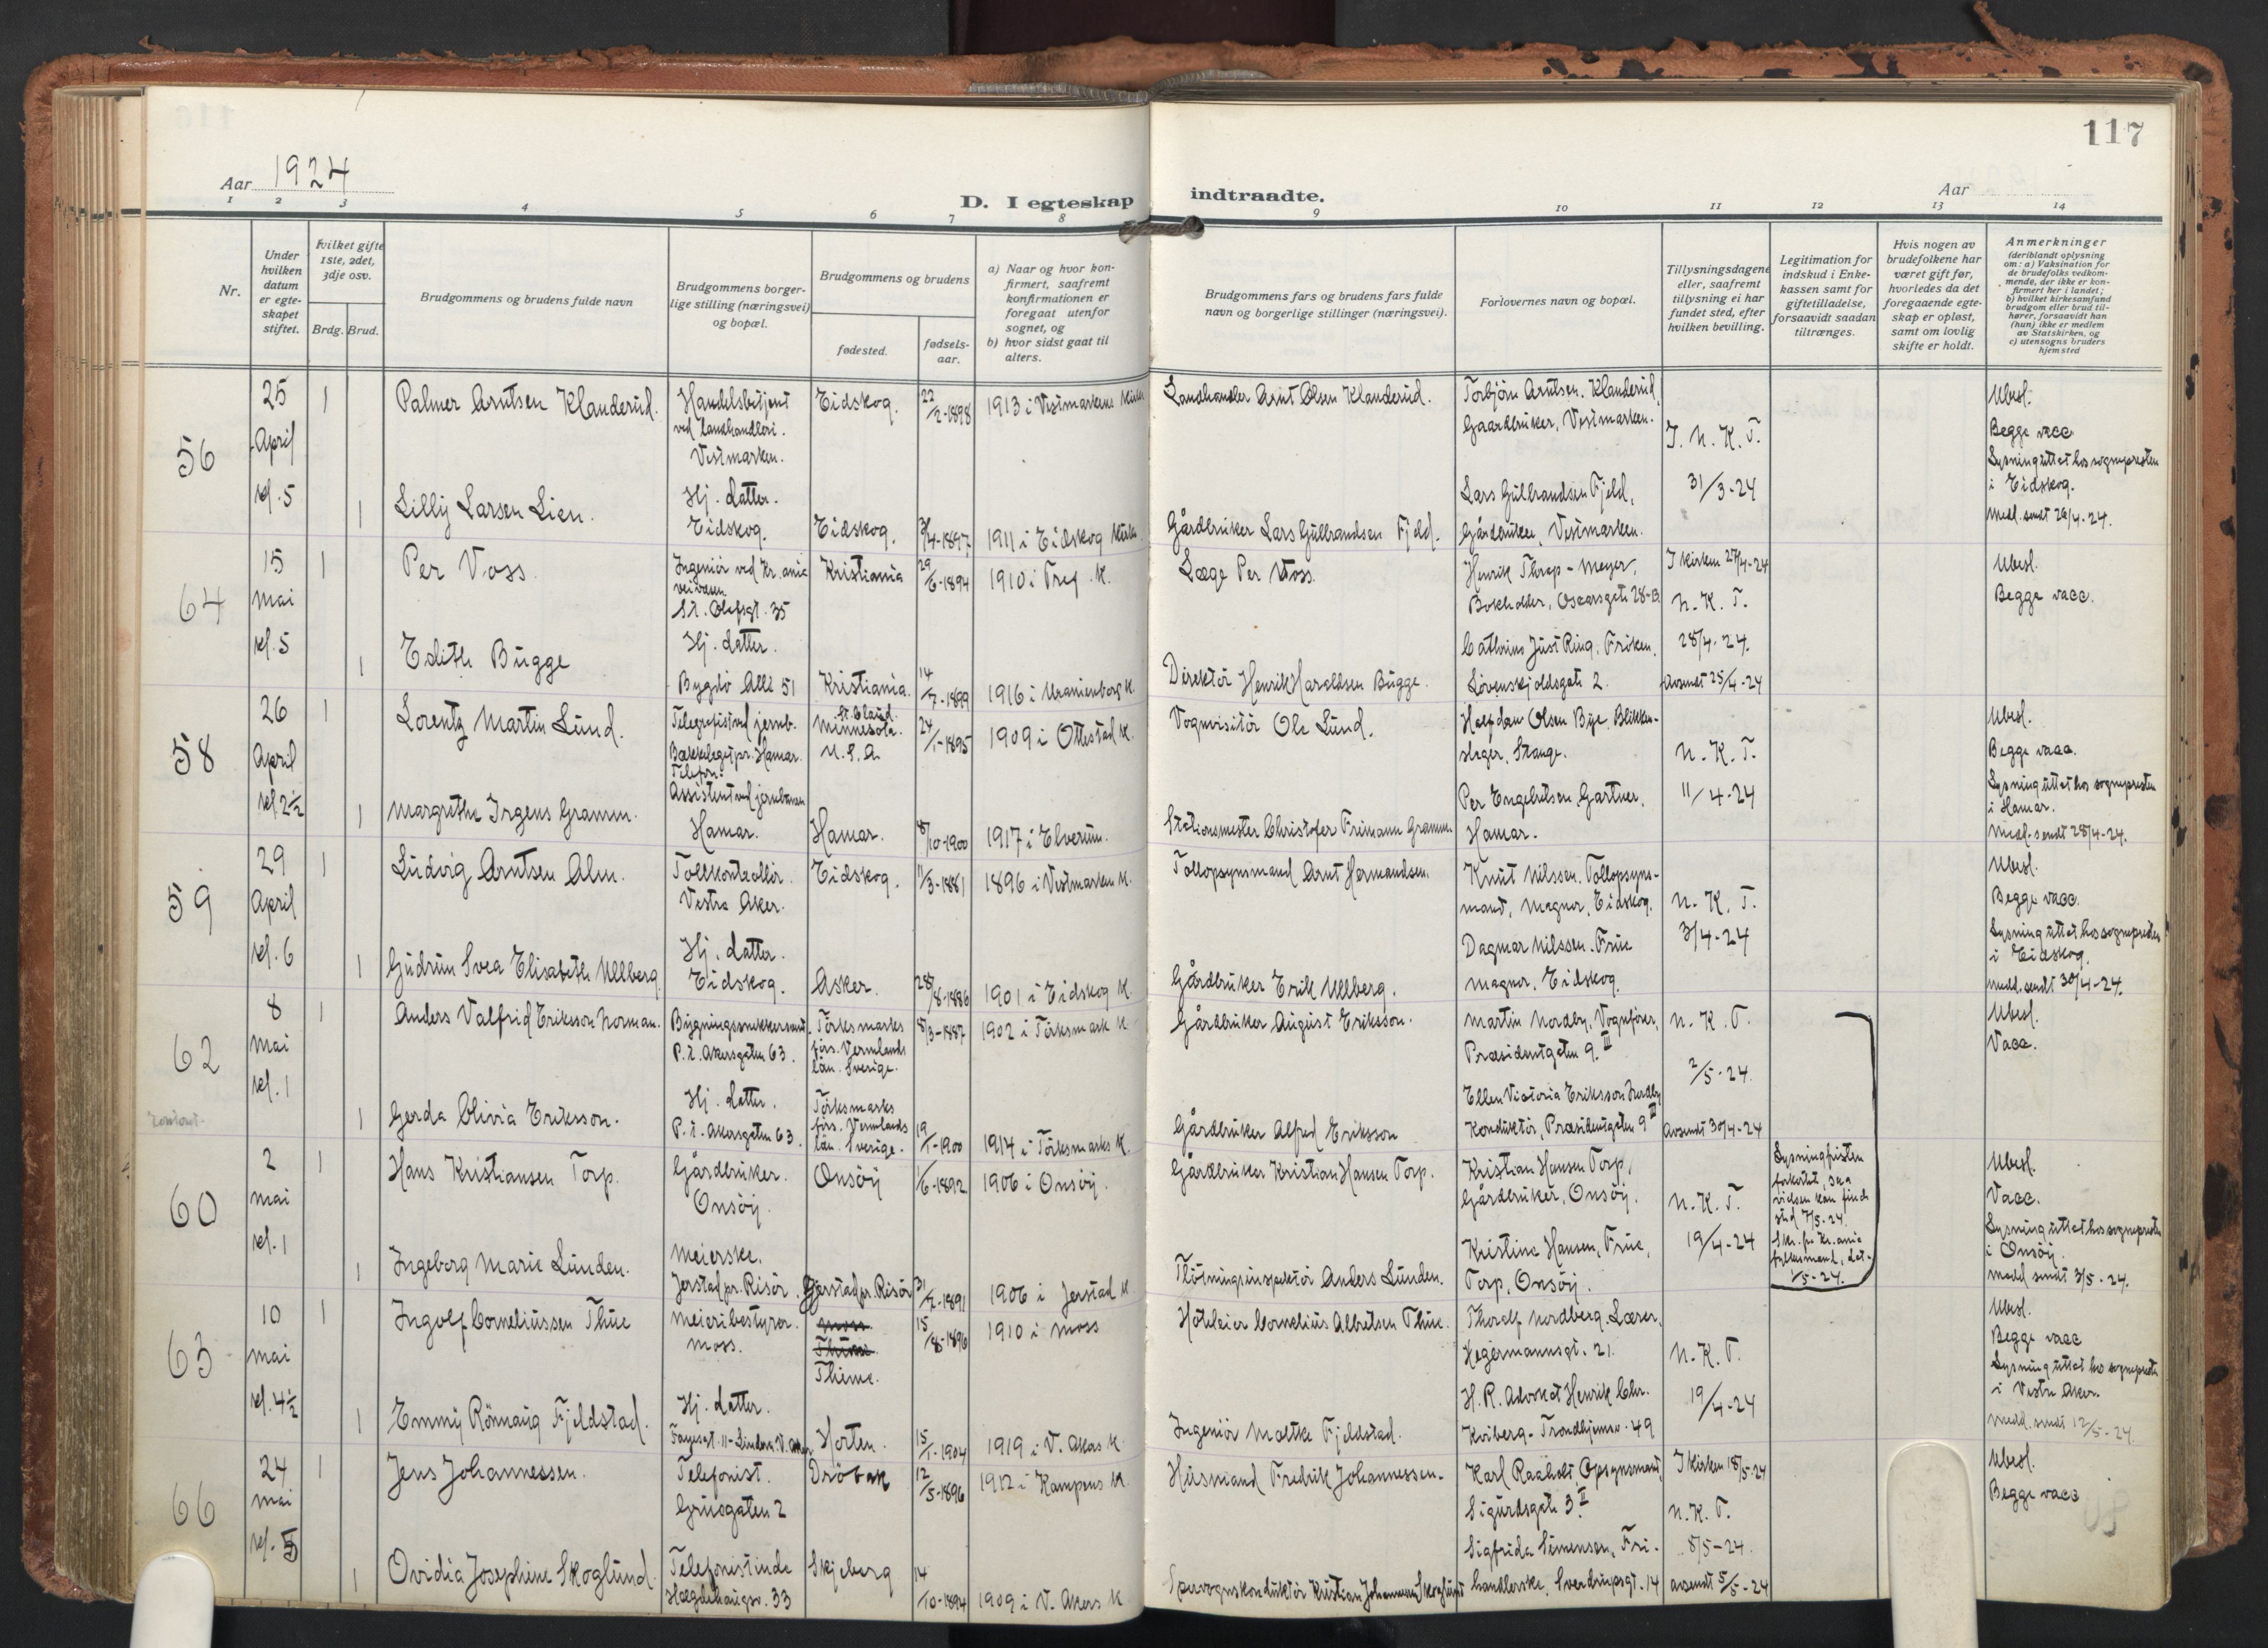 117
Aar 1924
D. I egteskap indtraadte.
Aar
1 2 3 4 5 6 7 8 9 10 11 12 13 14
Nr.
Under hvilken datum er egteskapet stiftet.
Hvilket gifte 1ste, 2det, 3dje osv.
Brdg. Brud.
Brudgommens og brudens fulde navn
Brudgommens borgerlige stilling (næringsvei) og bopæl.
Brudgommens og brudens
fødested.
fødselsaar.
a) Naar og hvor konfirmert, saafremt konfirmationen er foregaat utenfor sognet, og
b) hvor sidst gaat til alters.
Brudgommens fars og brudens fars fulde navn og borgerlige stillinger (næringsvei).
Forlovernes navn og bopæl.
Tillysningsdagene eller, saafremt tillysning ei har fundet sted, efter hvilken bevilling.
Legitimation for indskud i Enkekassen samt for giftetilladelse, forsaavidt saadan tiltrænges.
Hvis nogen av brudefolkene har været gift før, hvorledes da det foregaaende egteskap er opløst, samt om lovlig skifte er holdt.
Anmerkninger (deriblandt oplysning om: a) Vaksination for de brudefolks vedkommende, der ikke er konfirmert her i landet; b) hvilket kirkesamfund brudgom eller brud tilhører, forsaavidt han (hun) ikke er medlem av Statskirken, og c) utensogns bruders hjemsted
56
25 April kl. 5
1
Palmer Arntsen Klanderud.
Handelsbetjent ved landhandleri. Vestmarken.
Eidskog.
22/2-1898
1913 i Vestmarkens Kirke
Landhandler Arnt Olsen Klanderud.
Torbjørn Arntsen Klanderud, Gaardbruker, Vestmarken.
J. N. K. T.
31/3-24
Ubesl.
Begge vacc
Lysning uttat hos sognepresten i Eidskog.
Medd. sendt 26/4-24.
1
Lilly Larsen Lien.
Hj. datter.
Eidskog.
Eidskog.
/4-1897
1911 i Eidskog Kirke
Gårdbruker Lars Gulbrandsen Fjeld.
Lars Gulbrandsen Fjeld, Gårdbruker, Vestmarken.
64
15 mai kl. 5
1
Per Voss.
Ingeniör ved Kr.ania veivæsen
St. Olafsgt. 35
Kristiania
29/6-1894
1910 i Tref. K.
Læge Per Voss.
Henrik Thrap-Meyer, Bokholder, Oscarsgate 28-B
I kirken 27/4-24
N. K. T.
28/4-24.
Avsendt 25/4-24
Ubesl.
Begge vacc.
1
Edith Bugge
Hj. datter.
Bygdö Allé 51
Kristiania.
14/7-1899
1916 i Uranienborg K.
Direktör Henrik Haraldsen Bugge.
Cathrine Just Ring, Fröken.
Lövenskjoldsgate 2.
58
26 April kl 2½
1
Lorentz Martin Lund.
Telegrafist ved jernb. Bækkelaget pr. Hamar.
St. Cloud. Minnesota. U. S. A.
24/1-1895
1909 i Ottestad K.
Vognvisitör Ole Lund.
Halfdan Olsen Bye, Blikkenslager, Stange.
N. K. T.
11/4-24
Ubesl.
Begge vacc.
Lysning uttat hos sognepresten i Hamar.
Medd. sendt 28/4-24.
1
Margrethe Irgens Gramm.
Telefon. Assistent ved jernbanen
Hamar.
Hamar.
8/10-1900
1917 i Elverum.
Stationsmester Christofer Frimann Gramm
Per Engebretsen, Gartner, Hamar.
59
29 April kl. 6
1
Ludvig Arntsen Alm.
Tollkontrollör.
Vestre Aker.
Eidskog.
11/3-1881
1896 i Vestmarken K.
Tollopsynsmand Arnt Hermandsen.
Knut Nilssen, Tollopsynsmand, Magnor, Eidskog.
N. K. T.
3/4-24
Ubesl.
Begge vacc.
Lysning uttat hos sognepresten i Eidskog.
Medd. sendt 30/4-24.
1
Gudrun Svea Elisabeth Ullberg
Hj. datter.
Eidskog.
Asker.
28/8-1886
1901 i Eidskog K.
Gårdbruker Erik Ullberg.
Dagmar Nilssen, Frue
Magnor, Eidskog
62
8 mai kl. 1
1
Anders Valfrid Eriksson Norman.
Bygningssnekkersvend.
P.t. Akersgaten 63.
Törksmarks förs. Vermlands län. Sverige.
8/3-1887
1902 i Törksmark K
Gårdbruker August Eriksson.
Martin Nordby, Vognförer, Præsidentgaten 9 III
N. K. T.
2/5-24.
Avsendt 30/4-24
Ubesl.
Vacc.
1
Gerda Olivia Eriksson.
Hj. datter.
P.t. Akersgaten 63.
Törksmarks förs. Vermlands län. Sverige.
19/1-1900
1914 i Törksmarks K.
Gårdbruker Alfred Eriksson
Ellen Victoria Eriksson Nordby
Konduktör, Præsidentgaten 9 III
60
2 mai kl. 1
1
Hans Kristiansen Torp.
Gårdbruker.
Onsöy.
Onsöy
1/6-1892
1906 i Onsöy.
Gårdbruker Kristian Hansen Torp.
Kristian Hansen Torp, Gårdbruker, Onsöy.
N. K. T.
19/4-24
Lysningfristen forkortet, saa vielsen kan finde sted 7/5-24. Skr. fr. Kr.ania fylkesmand, dat. 1/5-24.
Ubesl.
Vacc.
Lysning uttat hos sognepresten i Onsöy.
Medd sendt 3/5-24.
1
Ingeborg Marie Lunden.
Meierske.
Jerstad pr. Risör.
Gjerstad pr. Risör
31/7-1891
1906 i Jerstad K
Flötningsinspektör Anders Lunden.
Kristine Hansen, Frue, Torp, Onsöy.
63
10 mai kl. 4½
1
Ingolf Corneliussen Thue
Meieribestyrer.
Moss.
Thime.
15/8-1896
1910 i Moss
Hötleier Cornelius Albretsen Thue.
Thoralf Nordberg, Lærer, Hegermannsgt. 21.
N. K. T.
19/4-24
Ubesl.
Begge vacc
Lysning uttat hos sognepresten i Vestre Aker.
Medd. sendt 12/5-24.
1
Emmy Rönnaug Fjeldstad.
Hj. datter.
Horten.
15/1-1904
1919 i V. Akers K
Ingeniör Moltke Fjeldstad.
H. R. Advokat Henrik Chr. Kviberg - Trondhjemsv. 49
66
24 mai kl. 5
1
Jens Johannessen.
Telefonist.
Grüsgaten 2
Dröbak
12/5-1896
1912 i Kampens K.
Husmand Fredrik Johannessen.
Karl Raaholt, Opsynsmand, Sigurdsgate 3 II
I kirken 18/5-24
N. K. T.
8/5-24.
avsendt 5/5-24
Ubesl.
Begge vacc
1
Ovidia Josephine Skoglund.
Telefonistinde
Hægdehaugsv. 33
Skjeberg
14/10-1894
1909 i V. Akers K
Sporvognskonduktör Kristian Johannesen Skoglund
Sigfrida Simensen, Frihandlerske, Sverdrupsgt. 14